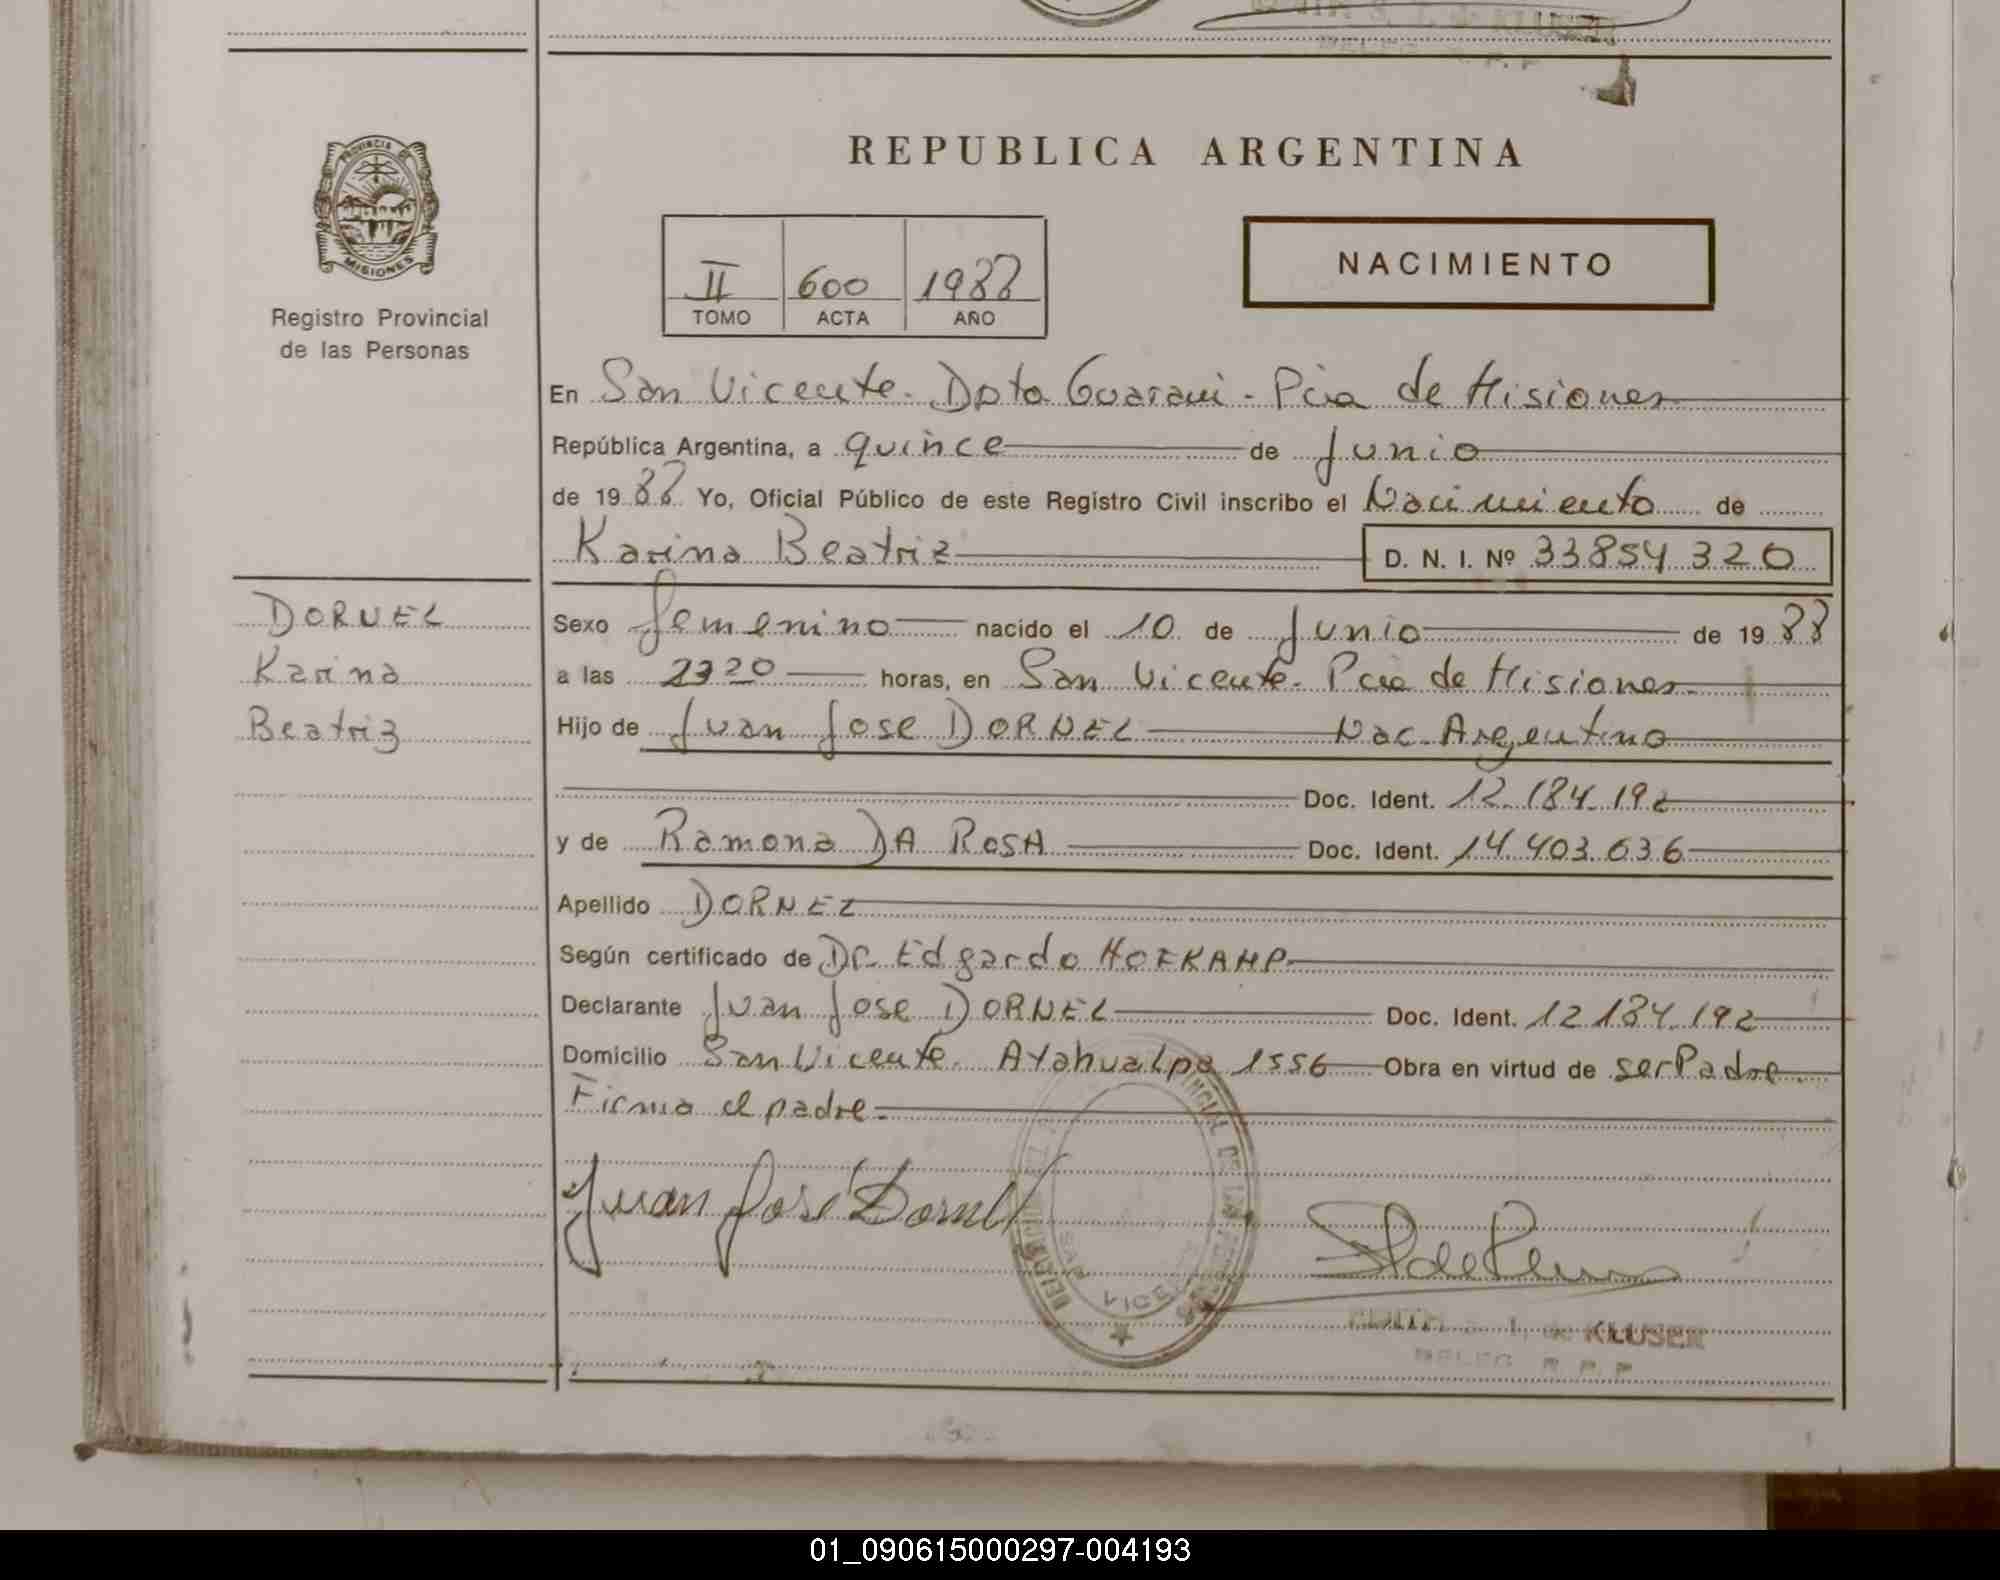 REPUBLICA ARGENTINA
PROVINCIA DE
MISIONES
Registro Provincial
de las Personas
II 600 1988
TOMO ACTA AÑO
NACIMIENTO
En San Vicente - Dpto Guarani - Pcia de Misiones
República Argentina, a quince de Junio
de 1988 Yo, Oficial Público de este Registro Civil inscribo el Nacimiento de
Karina Beatriz D. N. I. Nº 33854320
DORNEL
Karina
Beatriz
Sexo femenino nacido el 10 de Junio de 1988
a las 2320 horas, en San Vicente - Pcia de Misiones
Hijo de Juan Jose DORNEL Nac. Argentino
Doc. Ident. 12.184.192
y de Ramona DA ROSA Doc. Ident. 14.403.636
Apellido DORNEL
Según certificado de Dr. Edgardo HOFKAMP
Declarante Juan Jose DORNEL Doc. Ident. 12184.192
Domicilio San Vicente. Atahualpa 1556 Obra en virtud de ser Padre.
Firma el padre.
Juan José Dornel
KLUSER
DELEG. R. P. P
01_090615000297-004193